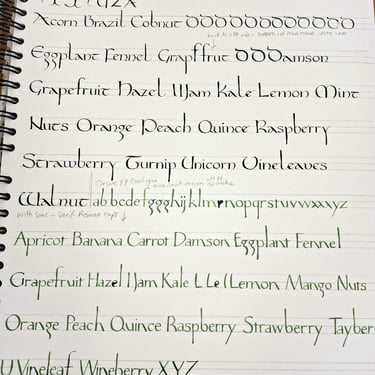 Acorn Brazil Cobnut DDDDDDDDDDDD
Eggplant Fennel Grapffruit DDDamson
Grapefruit Hazel IJam Kale Lemon Mint
Nuts Orange Peach Quince Raspberry
Strawberry Turnip Unicorn Vineleaves
Walnut abbcdefggghijklmrnopqrstuvwxxyz
with some - Serif Roman caps ↓
Apricot Banana Carrot Damson Eggplant Fennel
Grapefruit Hazel IJam Kale L Lel Lemon Mango Nuts
Orange Peach Quince Raspberry Strawberry Tayber
U Vineleaf Wineberry XYZ